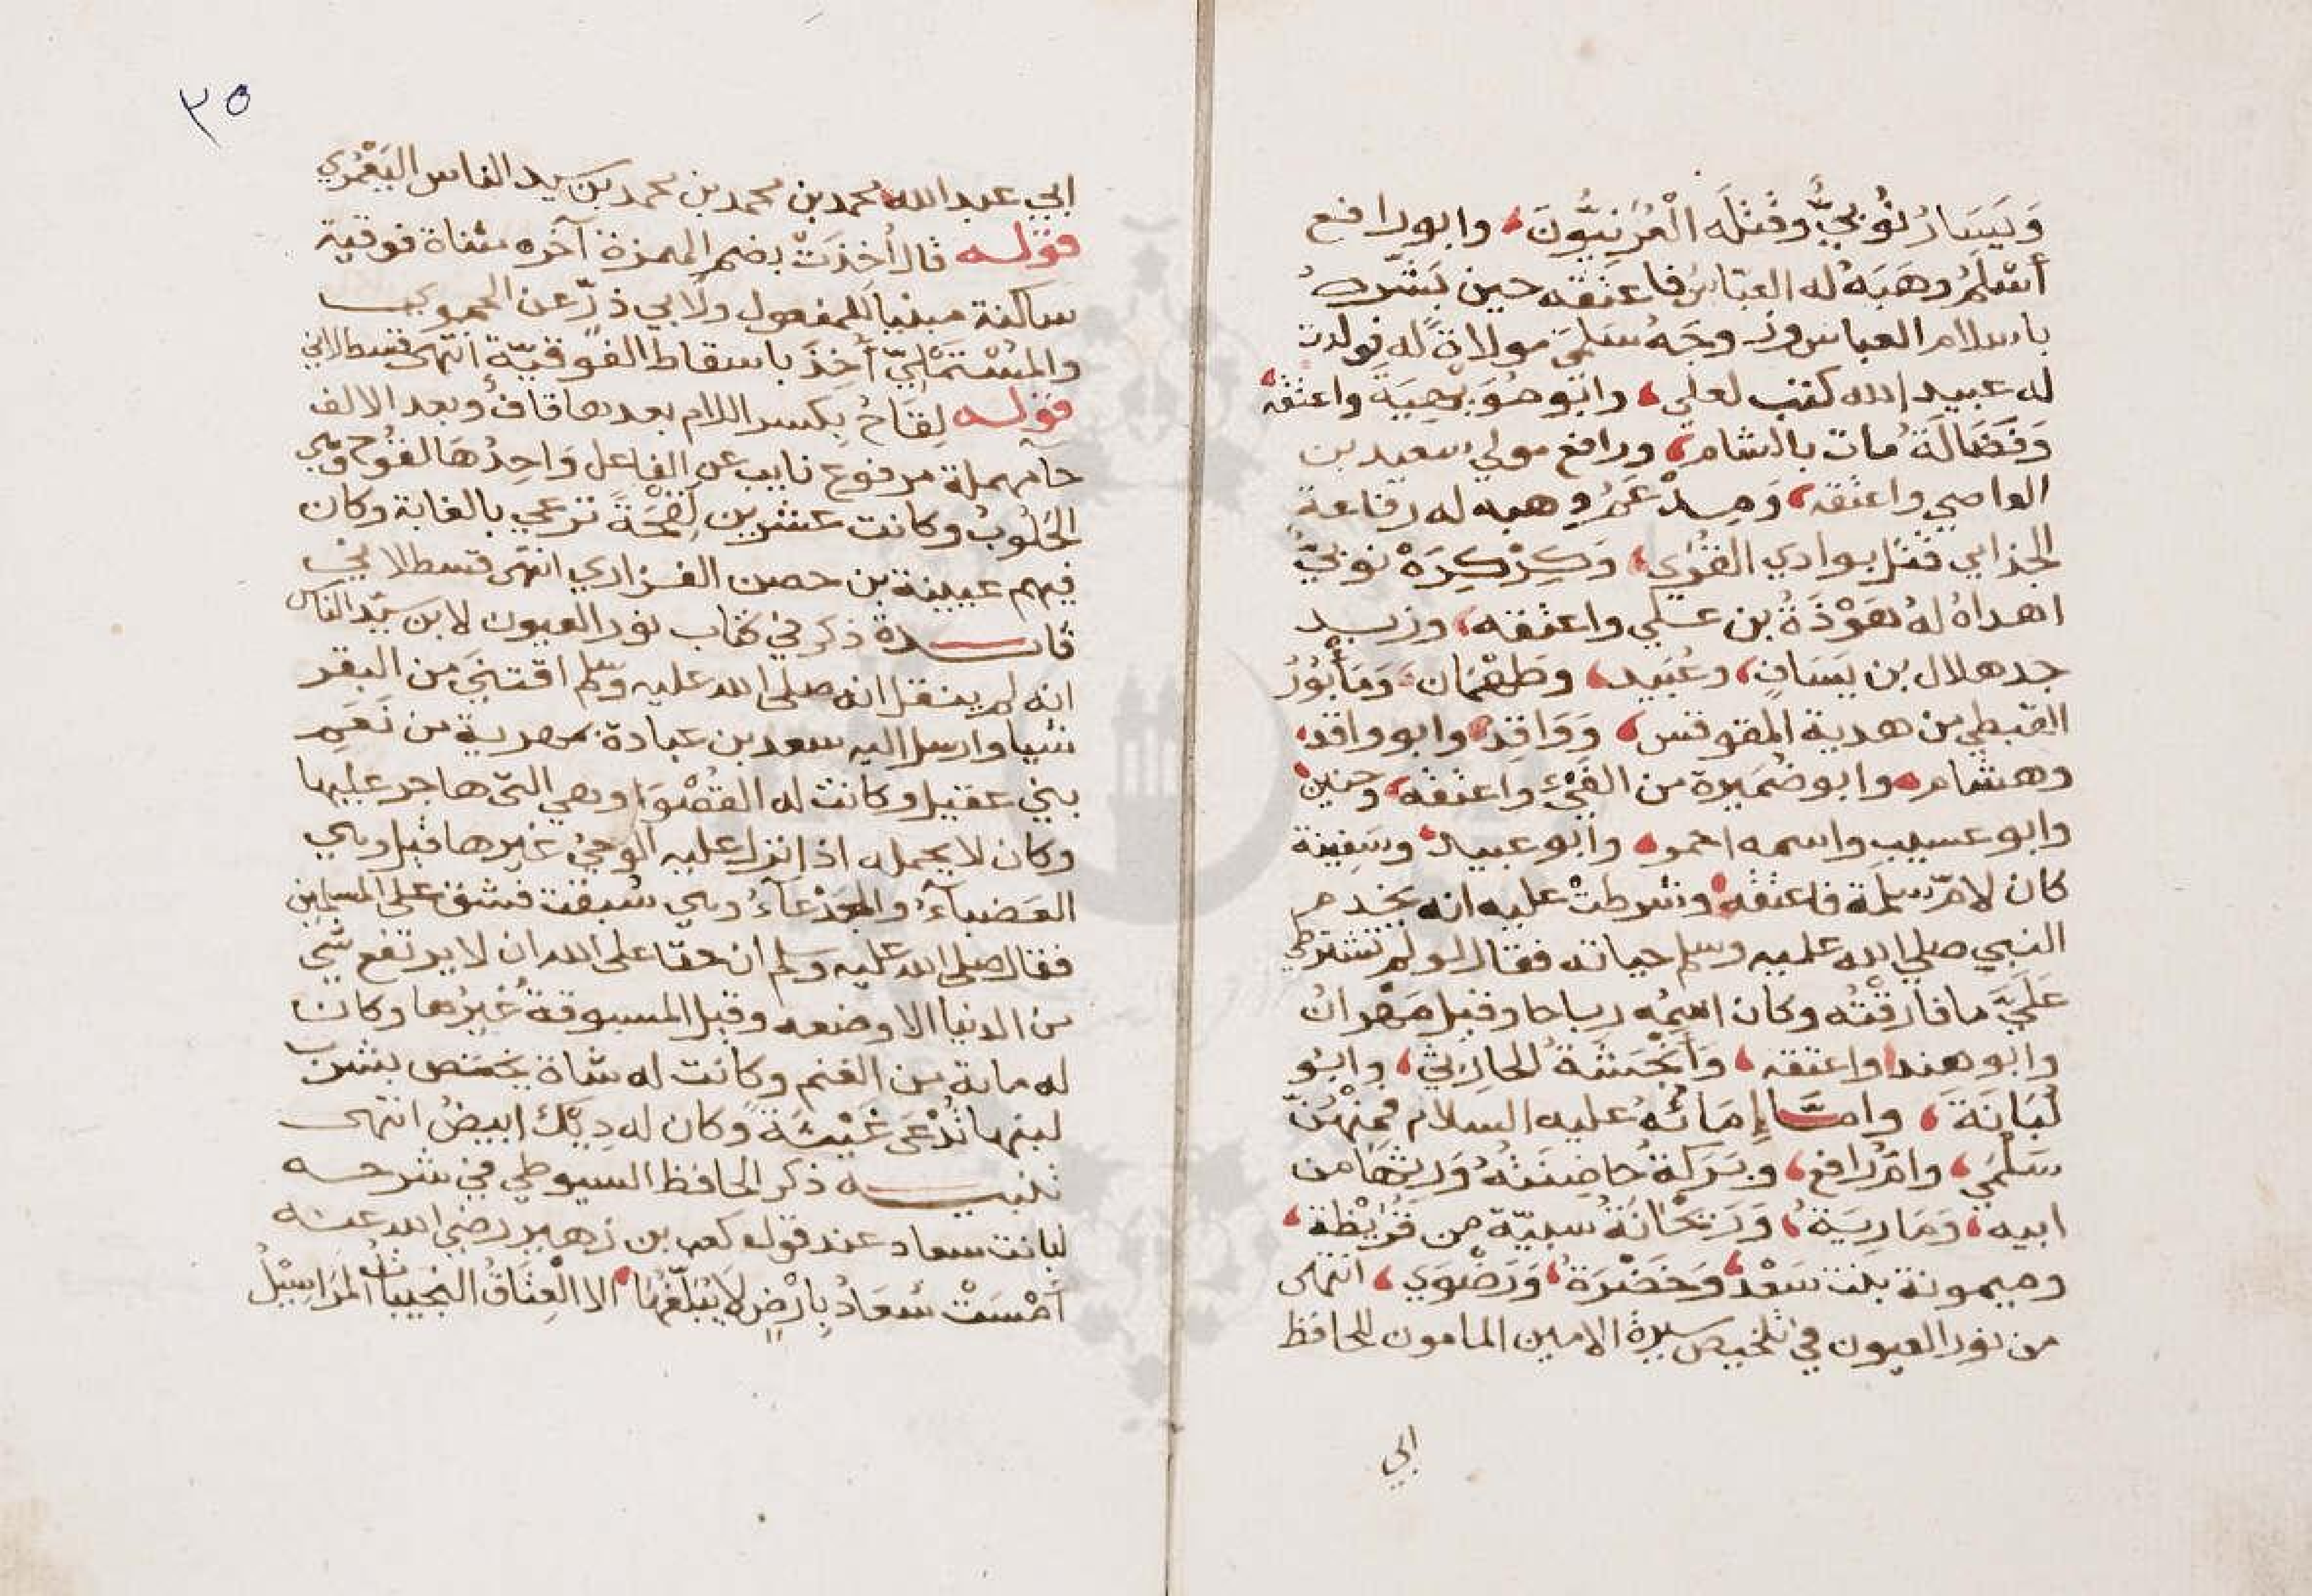 وَيَسَارُ نُوبيٌّ وقَتَلَه الْعُرَنيُّونَ، وابورافع
أسْلَمُ وهَبَهُ له العَبّاسُ فاعتَقَه حين بَشَّره
باسلام العباس وزوجَهُ سَلمَى مولاةً له فولدت
له عبيد الله كتب لعلي، وابُو مُوَيْهِبَةَ واعتقه
وَفَضَالَةُ مات بالشام، ورافع مولي سعيد بن
العاصي واعتقه، وَمِدْعَمُ وهبه له رفاعة
الجذامي قُتل بوادي القُرَي، وَكِرْكِرَة نوبيٌّ
اهداهُ لهُ هَوْذَةُ بن علي واعتقه، وزيد
جد هلال بن يَسَافٍ، وعُبَيد، وطَهْمَان، وَمَأْبُورُ
القبطي من هدية المقوقس، وَوَاقِد، وابو واقد،
وهشام، وابو ضُمَيرة من الفَيْء واعتقه، وحنين
وابو عسيب واسمه احمر، وابو عبيد، وسَفِينة
كان لامّ سلمة فاعتقته وشرطتْ عليه انه يخدم
النبي صلي الله عليه وسلم حياته فقال لو لم تشترطي
عَلَيَّ ما فارقْتُه وكان اسمُه رباحا وقيل مَهْرانُ
وابو هند واعتقه، وَأَنْجَشَةُ الحاربيُّ، وابو
لُبَابَةَ، وامَّا إِمَائُهُ عليه السلام فَمِنْهُنَّ
سَلْمَي، وامّ رافع، وبَرَكةُ حاضِنَتُهُ وَرِثَهَا من
ابيه، وَمَارِيَةُ، وَرَيْحَانَةُ سبيّة من قُرَيْظَة،
وميمونة بنت سَعْد، وخَضْرَةُ، وَرَضْوَي، انتهى
من نور العيون في تلخيص سيرة الامين المامون للحافظ
ابي
٣٥
ابي عبد الله محمد بن محمد بن محمد بن سيد الناس اليَعْمُرِي
قوله قال أُخِذَتْ بضم الهمزة آخره مثناة فوقية
ساكنة مبنيا للمفعول ولابي ذرّ عن الحموي
والمُسْتَمْلِيّ أُخِذَ باسقاط الفَوقيّة انتهى قسطلاني
قوله لِقَاحُ بكسر اللام بعدها قاف وبعد الالف
حآ مهملة مرفوع نايب عن الفاعل وَاحِدُهَا لقوح وهي
الحَلُوبُ وكانت عشرين لِقْحَةً ترعي بالغابة وكان
فيهم عيينة بن حصن الفزاري انتهى قسطلاني
فايدة ذكر في كتاب نور العيون لابن سيّد الناس
انه لم ينقل انه صلى الله عليه وسلم اقتني من البقر
شيا وارسل اليه سعد بن عبادة بمهرية من نَعَمِ
بني عقيل وكانت له القَصْوَا وهي التي هاجر عليها
وكان لا يحمله اذا نزل عليه الوحيُ غيرها قيل وهي
العَضبآءُ والجَدْعَآءُ وهي سُبقت فشق على المسلمين
فقال صلى الله عليه وسلم ان حقا على الله ان لا يرتفع شي
من الدنيا الا وضعه وقيل المسبوقة غيرُها وكان
له ماية من الغنم وكانت له شاة يختص بشرب
لبنها تُدْعَى غَيْثَةَ وكان له دِيكُ ابيضُ انتهى
تنبيه ذكر الحافظ السيوطي في شرحه
لبانت سعاد عند قول كعب بن زهير رضي الله عنه
أَمْسَتْ سُعَادُ بِارْضٍ لَا يُبَلِّغُهَا الا الْعِتَاقُ النجيباتُ المَرَاسِيلُ